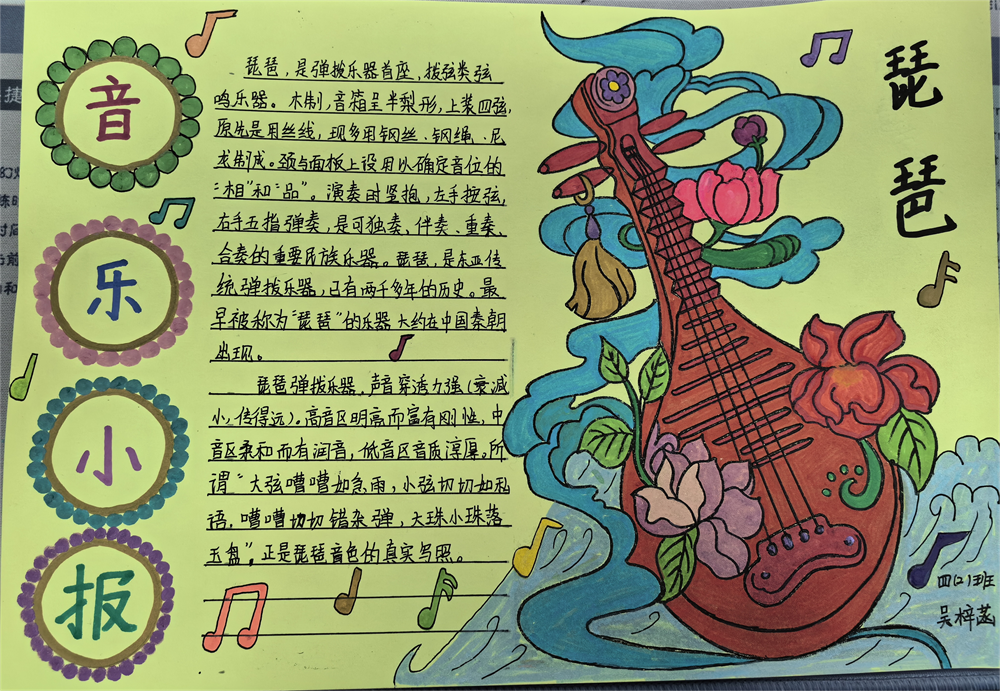 音
乐
小
报
琵琶,是弹拨乐器首座,拨弦类弦
鸣乐器。木制,音箱呈半梨形,上装四弦,
原先是用丝线,现多用钢丝、钢绳、尼
龙制成。颈与面板上设用以确定音位的
“相”和“品”。演奏时竖抱,左手按弦,
右手五指弹奏,是可独奏、伴奏、重奏、
合奏的重要民族乐器。琵琶,是东亚传
统弹拨乐器,已有两千多年的历史。最
早被称为“琵琶”的乐器大约在中国秦朝
出现。
琵琶弹拨乐器,声音穿透力强(衰减
小,传得远)。高音区明亮而富有刚性,中
音区柔和而有润音,低音区音质淳厚。所
谓“大弦嘈嘈如急雨,小弦切切如私
语。嘈嘈切切错杂弹,大珠小珠落
玉盘”,正是琵琶音色的真实写照。
琵
琶
四(2)班
吴梓菡